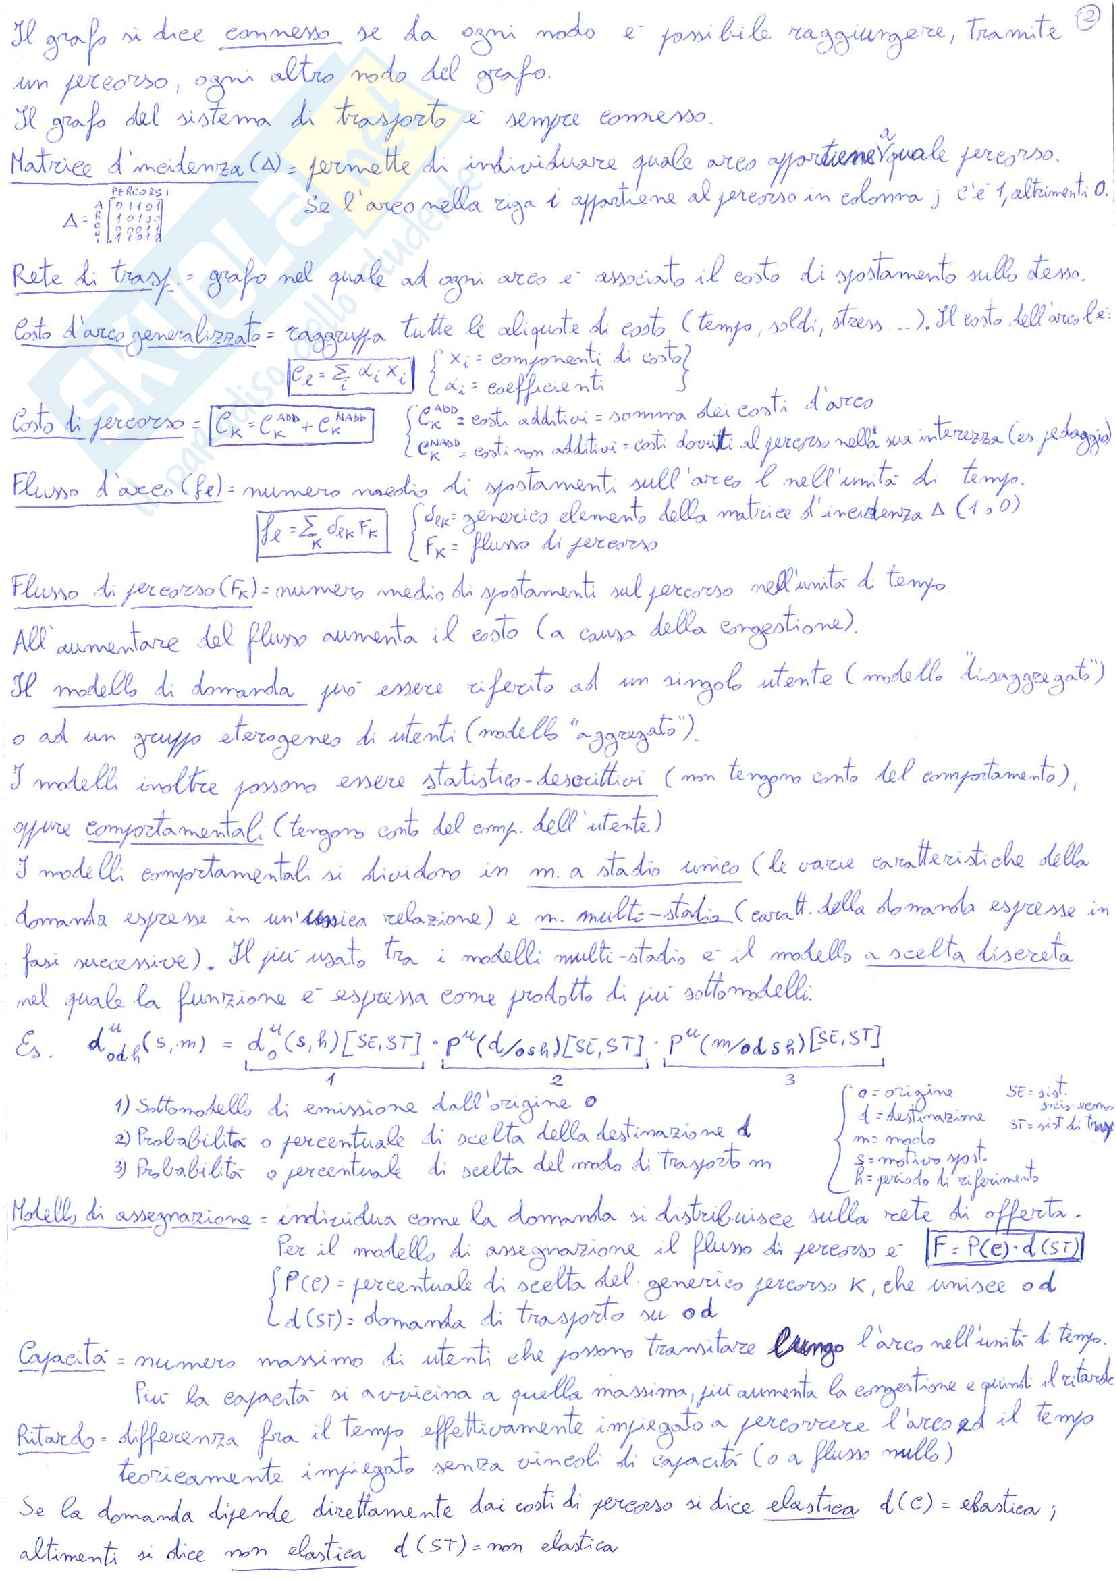 2
Il grafo si dice connesso se da ogni nodo è possibile raggiungere, tramite
un percorso, ogni altro nodo del grafo.
Il grafo del sistema di trasporto è sempre connesso.
Matrice d'incidenza (Δ) = permette di individuare quale arco appartiene a quale percorso.
PERCORSI
Se l'arco nella riga i appartiene al percorso in colonna j c'è 1, altrimenti 0.
Δ =
Rete di trasp. = grafo nel quale ad ogni arco è associato il costo di spostamento sullo stesso.
Costo d'arco generalizzato = raggruppa tutte le aliquote di costo (tempo, soldi, stress ...). Il costo dell'arco l è:
Cl = Σi αi Xi { Xi = componenti di costo
αi = coefficienti }
Costo di percorso = CK = CK^ADD + CK^NADD { CK^ADD = costi additivi = somma dei costi d'arco
CK^NADD = costi non additivi = costi dovuti al percorso nella sua interezza (es. pedaggio)
Flusso d'arco (fl) = numero medio di spostamenti sull'arco l nell'unità di tempo.
fl = ΣK δlK FK { δlK = generico elemento della matrice d'incidenza Δ (1 o 0)
FK = flusso di percorso
Flusso di percorso (FK) = numero medio di spostamenti sul percorso nell'unità d tempo
All'aumentare del flusso aumenta il costo (a causa della congestione).
Il modello di domanda può essere riferito ad un singolo utente (modello "disaggregato")
o ad un gruppo eterogeneo di utenti (modello "aggregato").
I modelli inoltre possono essere statistico-descrittivi (non tengono conto del comportamento),
oppure comportamentali (tengono conto del comp. dell'utente)
I modelli comportamentali si dividono in m. a stadio unico (le varie caratteristiche della
domanda espresse in un'unica relazione) e m. multi-stadio (caratt. della domanda espresse in
fasi successive). Il più usato tra i modelli multi-stadio è il modello a scelta discreta
nel quale la funzione è espressa come prodotto di più sottomodelli.
Es. d^u odh (s,m) = d^u o (s,h)[SE,ST] · P^u(d/osh)[SE,ST] · P^u(m/odsh)[SE,ST]
1 2 3
1) Sottomodello di emissione dall'origine o
2) Probabilità o percentuale di scelta della destinazione d
3) Probabilità o percentuale di scelta del modo di trasporto m
{ o = origine
d = destinazione
m = modo
s = motivo spost.
h = periodo di riferimento
SE = sist.
ST = sist di trasp
Modello di assegnazione = individua come la domanda si distribuisce sulla rete di offerta.
Per il modello di assegnazione il flusso di percorso è F = P(C) · d(ST)
{ P(C) = percentuale di scelta del generico percorso K, che unisce od
d(ST) = domanda di trasporto su od
Capacità = numero massimo di utenti che possono transitare lungo l'arco nell'unità d tempo.
Più la capacità si avvicina a quella massima, più aumenta la congestione e quindi il ritardo
Ritardo = differenza fra il tempo effettivamente impiegato a percorrere l'arco ed il tempo
teoricamente impiegato senza vincoli di capacità (o a flusso nullo)
Se la domanda dipende direttamente dai costi di percorso si dice elastica d(C) = elastica ;
altimenti si dice non elastica d(ST) = non elastica